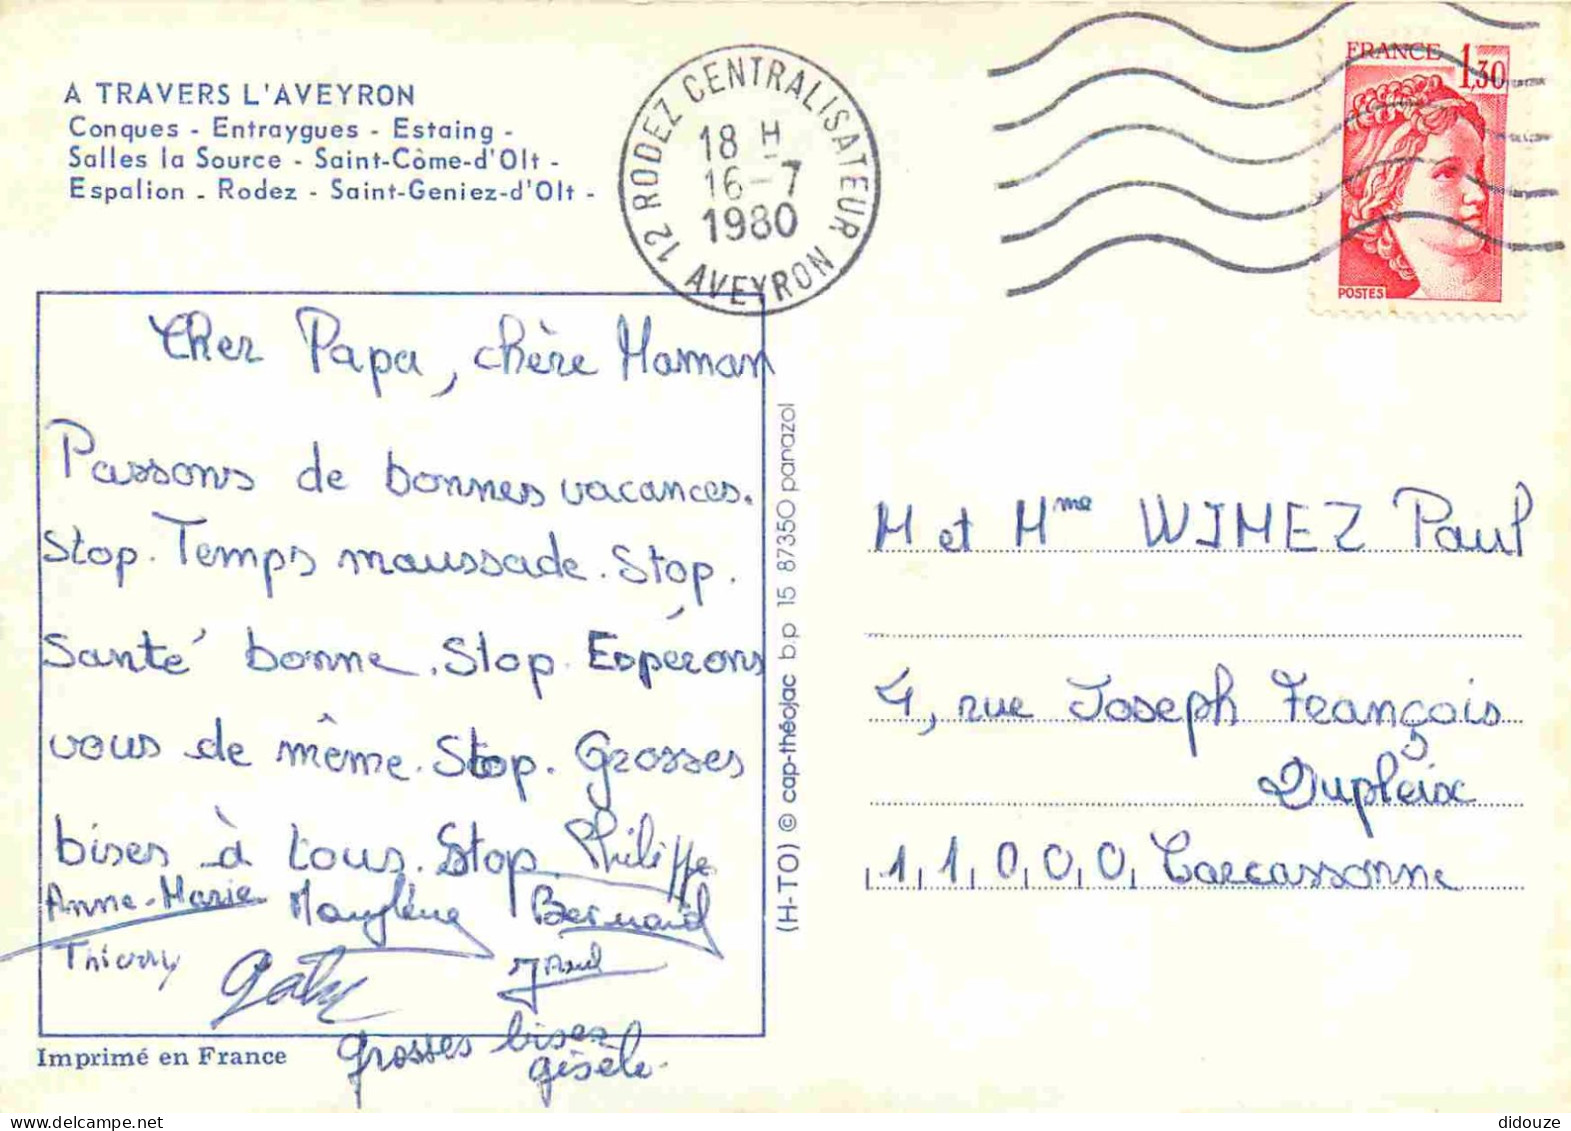 A TRAVERS L'AVEYRON
Conques - Entraygues - Estaing -
Salles la Source - Saint-Côme-d'Olt -
Espalion - Rodez - Saint-Geniez-d'Olt -
12 RODEZ CENTRALISATEUR
18 H
16-7
1980
AVEYRON
FRANCE 1,30
POSTES
Cher Papa, chère Maman
Passons de bonnes vacances.
Stop. Temps maussade. Stop.
Santé bonne. Stop. Espérons
vous de même. Stop. Grosses
bises à tous. Stop. Philippe
Anne-Marie Maryлène Bernard
Thierry Gaby
grosses bises
gisèle.
Imprimé en France
(H-TO) © cap-théojac b.p 15 87350 panazol
M et Mme WIMEZ Paul
4, rue Joseph François
Dupleix
11000 Carcassonne
didouze